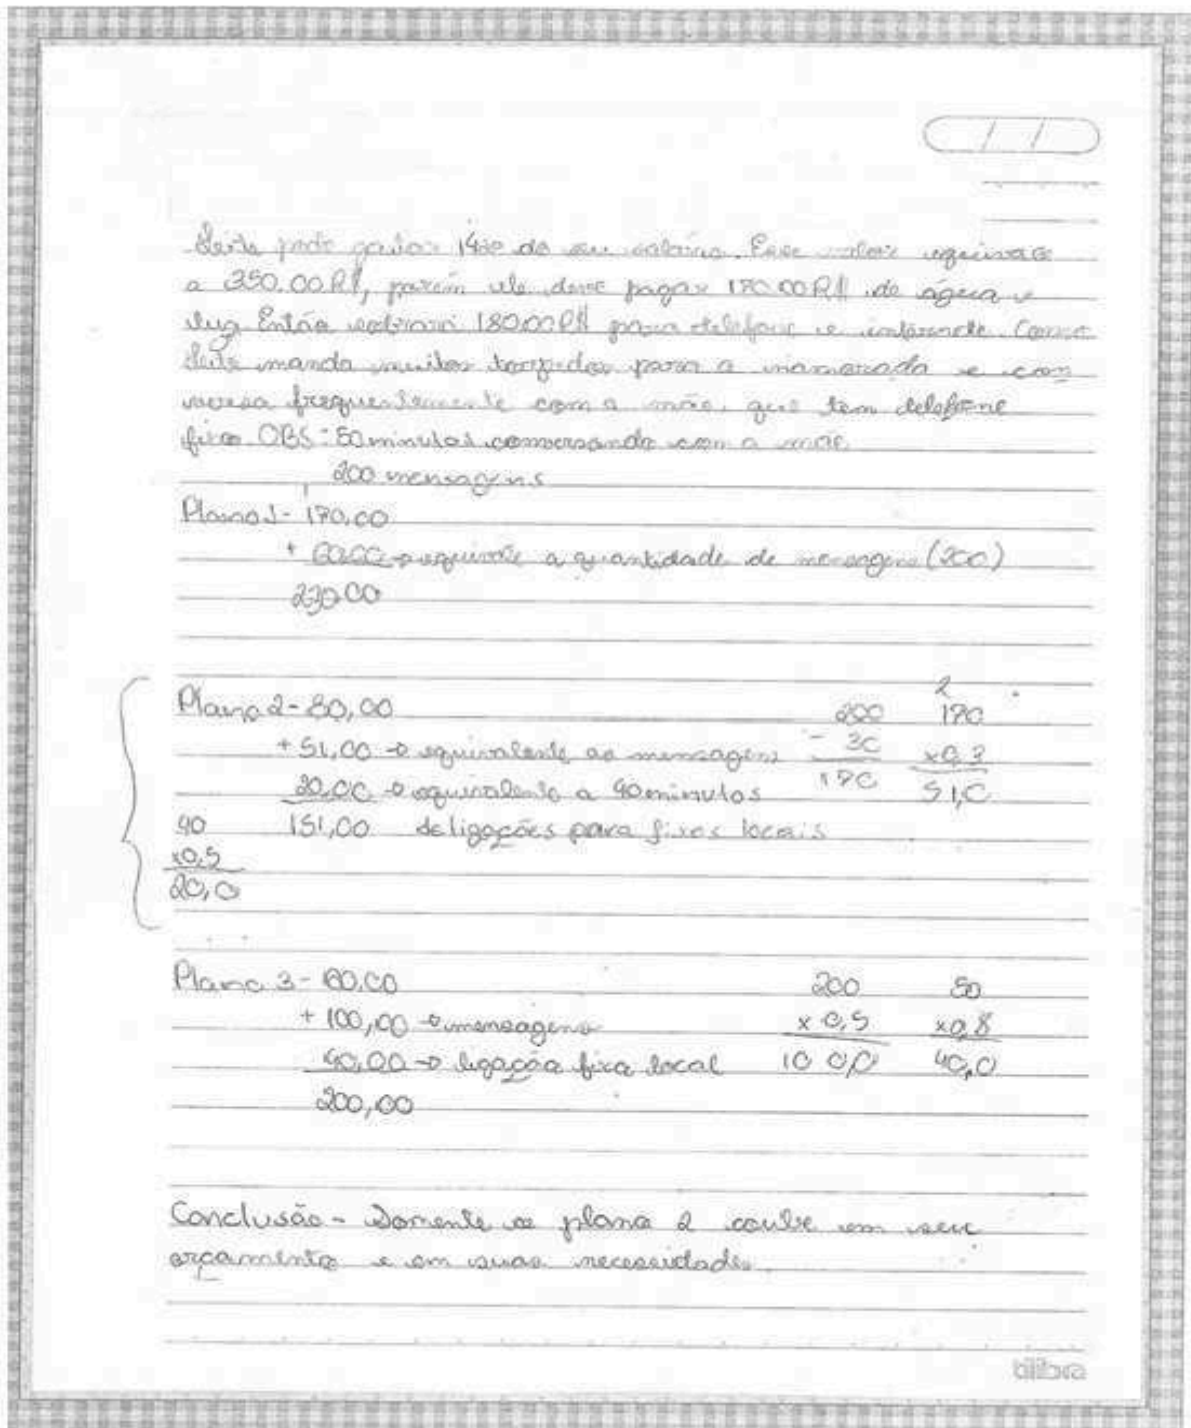 pode gastar 14% do seu salário. Esse valor equivale
a 350.00 R$, porém ele deve pagar 170.00 R$ de água e
luz. Então sobrará 180.00 R$ para telefone e internete. Como
manda muitos torpedos para a namorada e con
versa frequentemente com a mãe, que tem telefone
fixo OBS: 50 minutos conversando com a mãe
200 mensagens
Plano 1 - 170,00
+ 60,00 → equivale a quantidade de mensagens (200)
230,00
Plano 2 - 80,00 200 170
+ 51,00 → equivalente as mensagens - 30 x0,3
20,00 → equivalente a 40 minutos 170 51,0
40 151,00 de ligações para fixos locais
x0,5
20,0
Plano 3 - 60,00 200 50
+ 100,00 → mensagens x 0,5 x0,8
40,00 → ligação fixa local 100,0 40,0
200,00
Conclusão - Somente o plano 2 coube em seu
orçamento e em suas necessidades.
tilibra